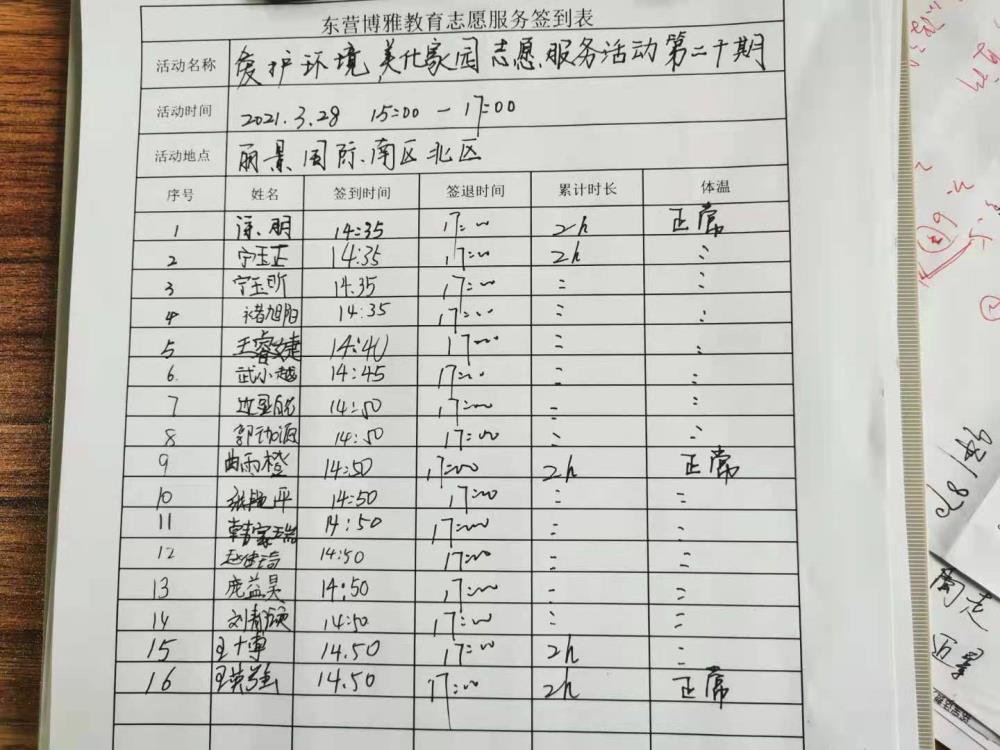 东营博雅教育志愿服务签到表
活动名称 爱护环境 美化家园 志愿服务活动第二十期
活动时间 2021.3.28 15:00 — 17:00
活动地点 丽景国际、南区北区
序号 姓名 签到时间 签退时间 累计时长 体温
1 明 14:35 17:00 2h 正常
2 宁玉正 14:35 17:00 2h 〃
3 宁玉昕 14.35 17:00 〃 〃
4 褚旭阳 14:35 17:00 〃 〃
5 王睿婕 14:40 17:00 〃 〃
6. 武小越 14:45 17:00 〃 〃
7 14:50 17:00 〃 〃
8 郭珈源 14:50 17:00 〃 〃
9 曲雨橙 14:50 17:00 2h 正常
10 张艳平 14:50 17:00 〃 〃
11 韩家瑞 14:50 17:00 〃 〃
12 14:50 17:00 〃 〃
13 庞益昊 14:50 17:00 〃 〃
14 刘 14:50 17:00 〃 〃
15 王博 14.50 17:00 2h 〃
16 王 14.50 17:00 2h 正常